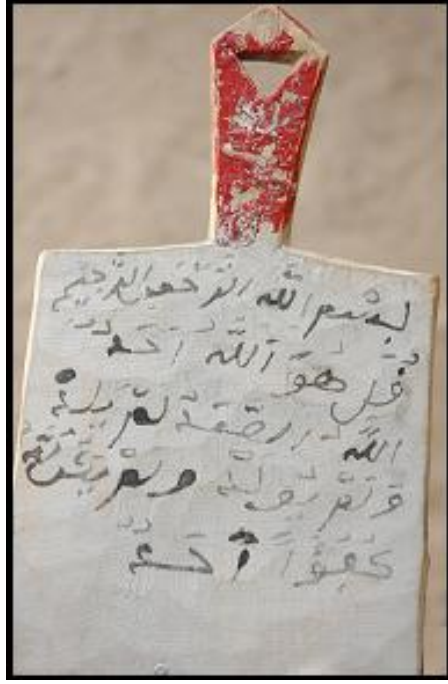 بسم الله الرحمن الرحيم
قل هو آلله أحد
الله الصمد لم يلد
ولم يولد ولم يكن له
كفوا أحد